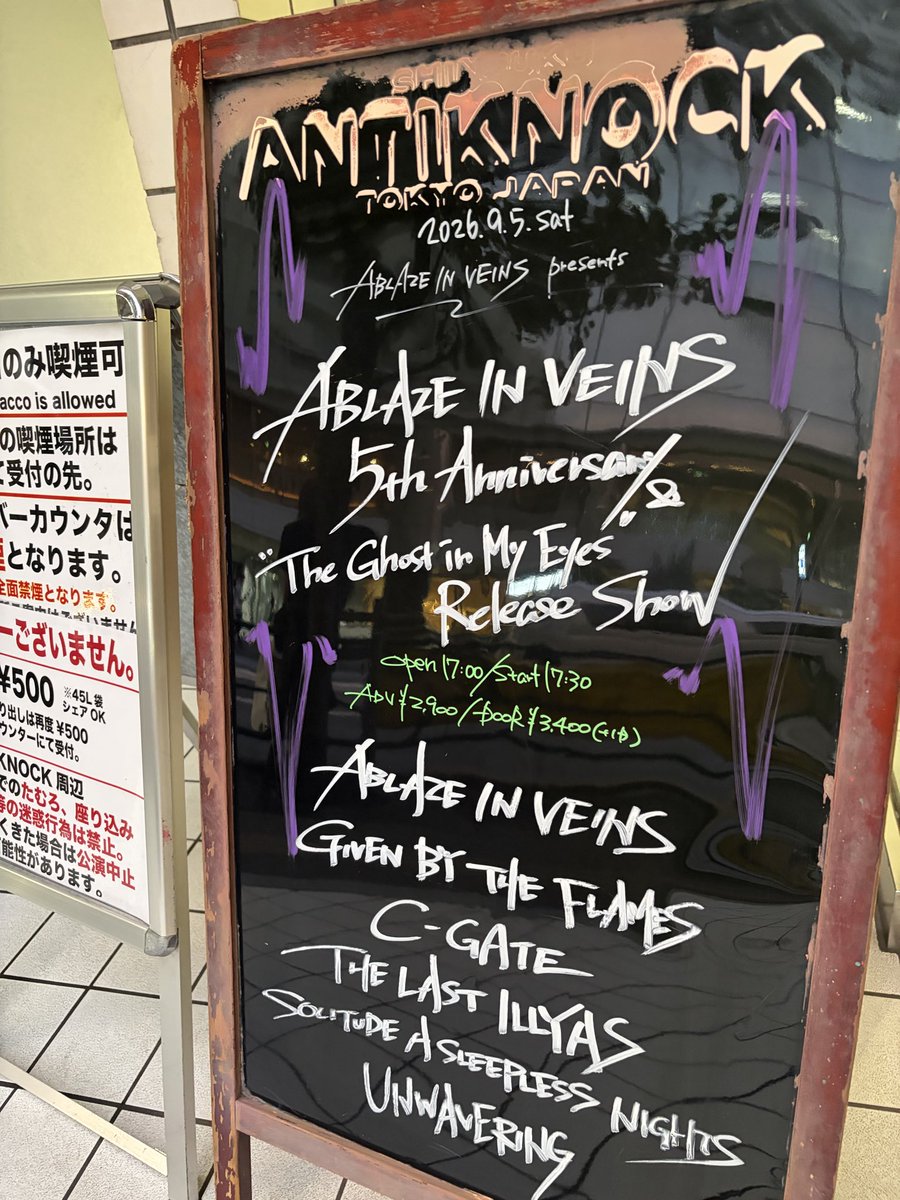 ANTIKNOCK
TOKYO JAPAN
2026.9.5.sat
ABLAZE IN VEINS presents
ABLAZE IN VEINS
5th Anniversary &
"The Ghost in My Eyes"
Release Show
open 17:00/Start 17:30
ADV ¥2,900/DOOR ¥3,400(+1D)
ABLAZE IN VEINS
GIVEN BY THE FLAMES
C-GATE
THE LAST ILLYAS
SOLITUDE A SLEEPLESS NIGHTS
UNWAVERING
のみ喫煙可
acco is allowed
の喫煙場所は
て受付の先。
バーカウンタは
となります。
全面禁煙となります。
ーございません。
¥500 ※45L 袋
シェア OK
り出しは再度 ¥500
ウンターにて受付。
KNOCK 周辺
でのたむろ、座り込み
等の迷惑行為は禁止。
くきた場合は公演中止
可能性があります。